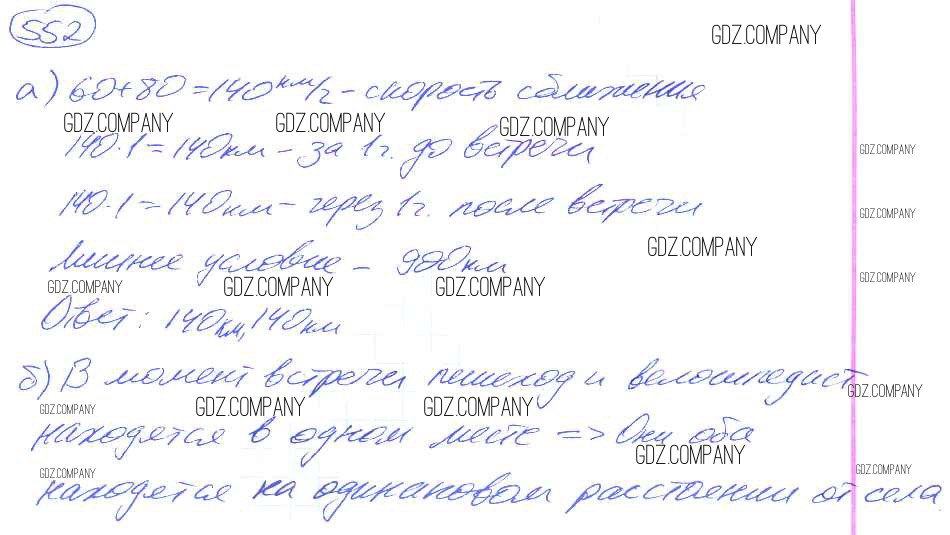 552
GDZ.COMPANY
а) 60+80=140км/г - скорость сближения
GDZ.COMPANY GDZ.COMPANY GDZ.COMPANY
140·1=140км - за 1г. до встречи
GDZ.COMPANY
140·1=140км - через 1г. после встречи
GDZ.COMPANY
GDZ.COMPANY
Лишнее условие - 900км
GDZ.COMPANY
GDZ.COMPANY GDZ.COMPANY GDZ.COMPANY
Ответ: 140км, 140км
б) В момент встречи пешеход и велосипедист
GDZ.COMPANY
GDZ.COMPANY GDZ.COMPANY GDZ.COMPANY
находятся в одном месте => Они оба
GDZ.COMPANY
GDZ.COMPANY GDZ.COMPANY
находятся на одинаковом расстоянии от села